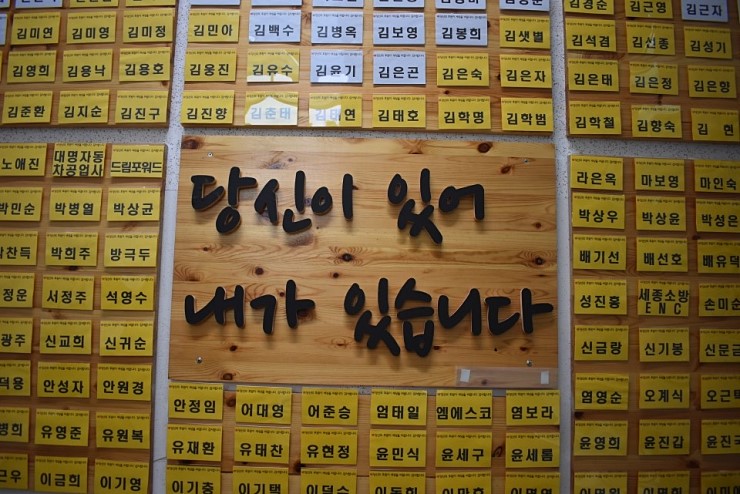 김미연 김미영 김미정 김민아 김백수 김병옥 김보영 김봉희 김샛별 김석겸 김선종 김성기
김영희 김용낙 김용호 김웅진 김유수 김윤기 김은곤 김은숙 김은자 김은태 김은정 김은향
김준환 김지순 김진구 김진향 김준태 김태연 김태호 김학명 김학범 김학철 김향숙 김 현
노애진 대명자동차공업사 드림포워드
박민순 박병열 박상균
박희주 방극두
정운 서정주 석영수
광주 신교희 신귀순
덕용 안성자 안원경
병희 유영준 유원복
이금희 이기
당신이 있어
내가 있습니다
라은옥 마보영 마인숙
박상우 박상윤 박성은
배기선 배선호 배유덕
성진홍 세종소방ENC 손미
신금랑 신기봉 신문금
염영순 오계식 오근택
윤영희 윤진갑 윤진
안정임 어대영 어준승 엄태일 엠에스코 염보라
유재환 유태찬 유현정 윤민식 윤세구 윤세롬
이기충 이기택 이덕수